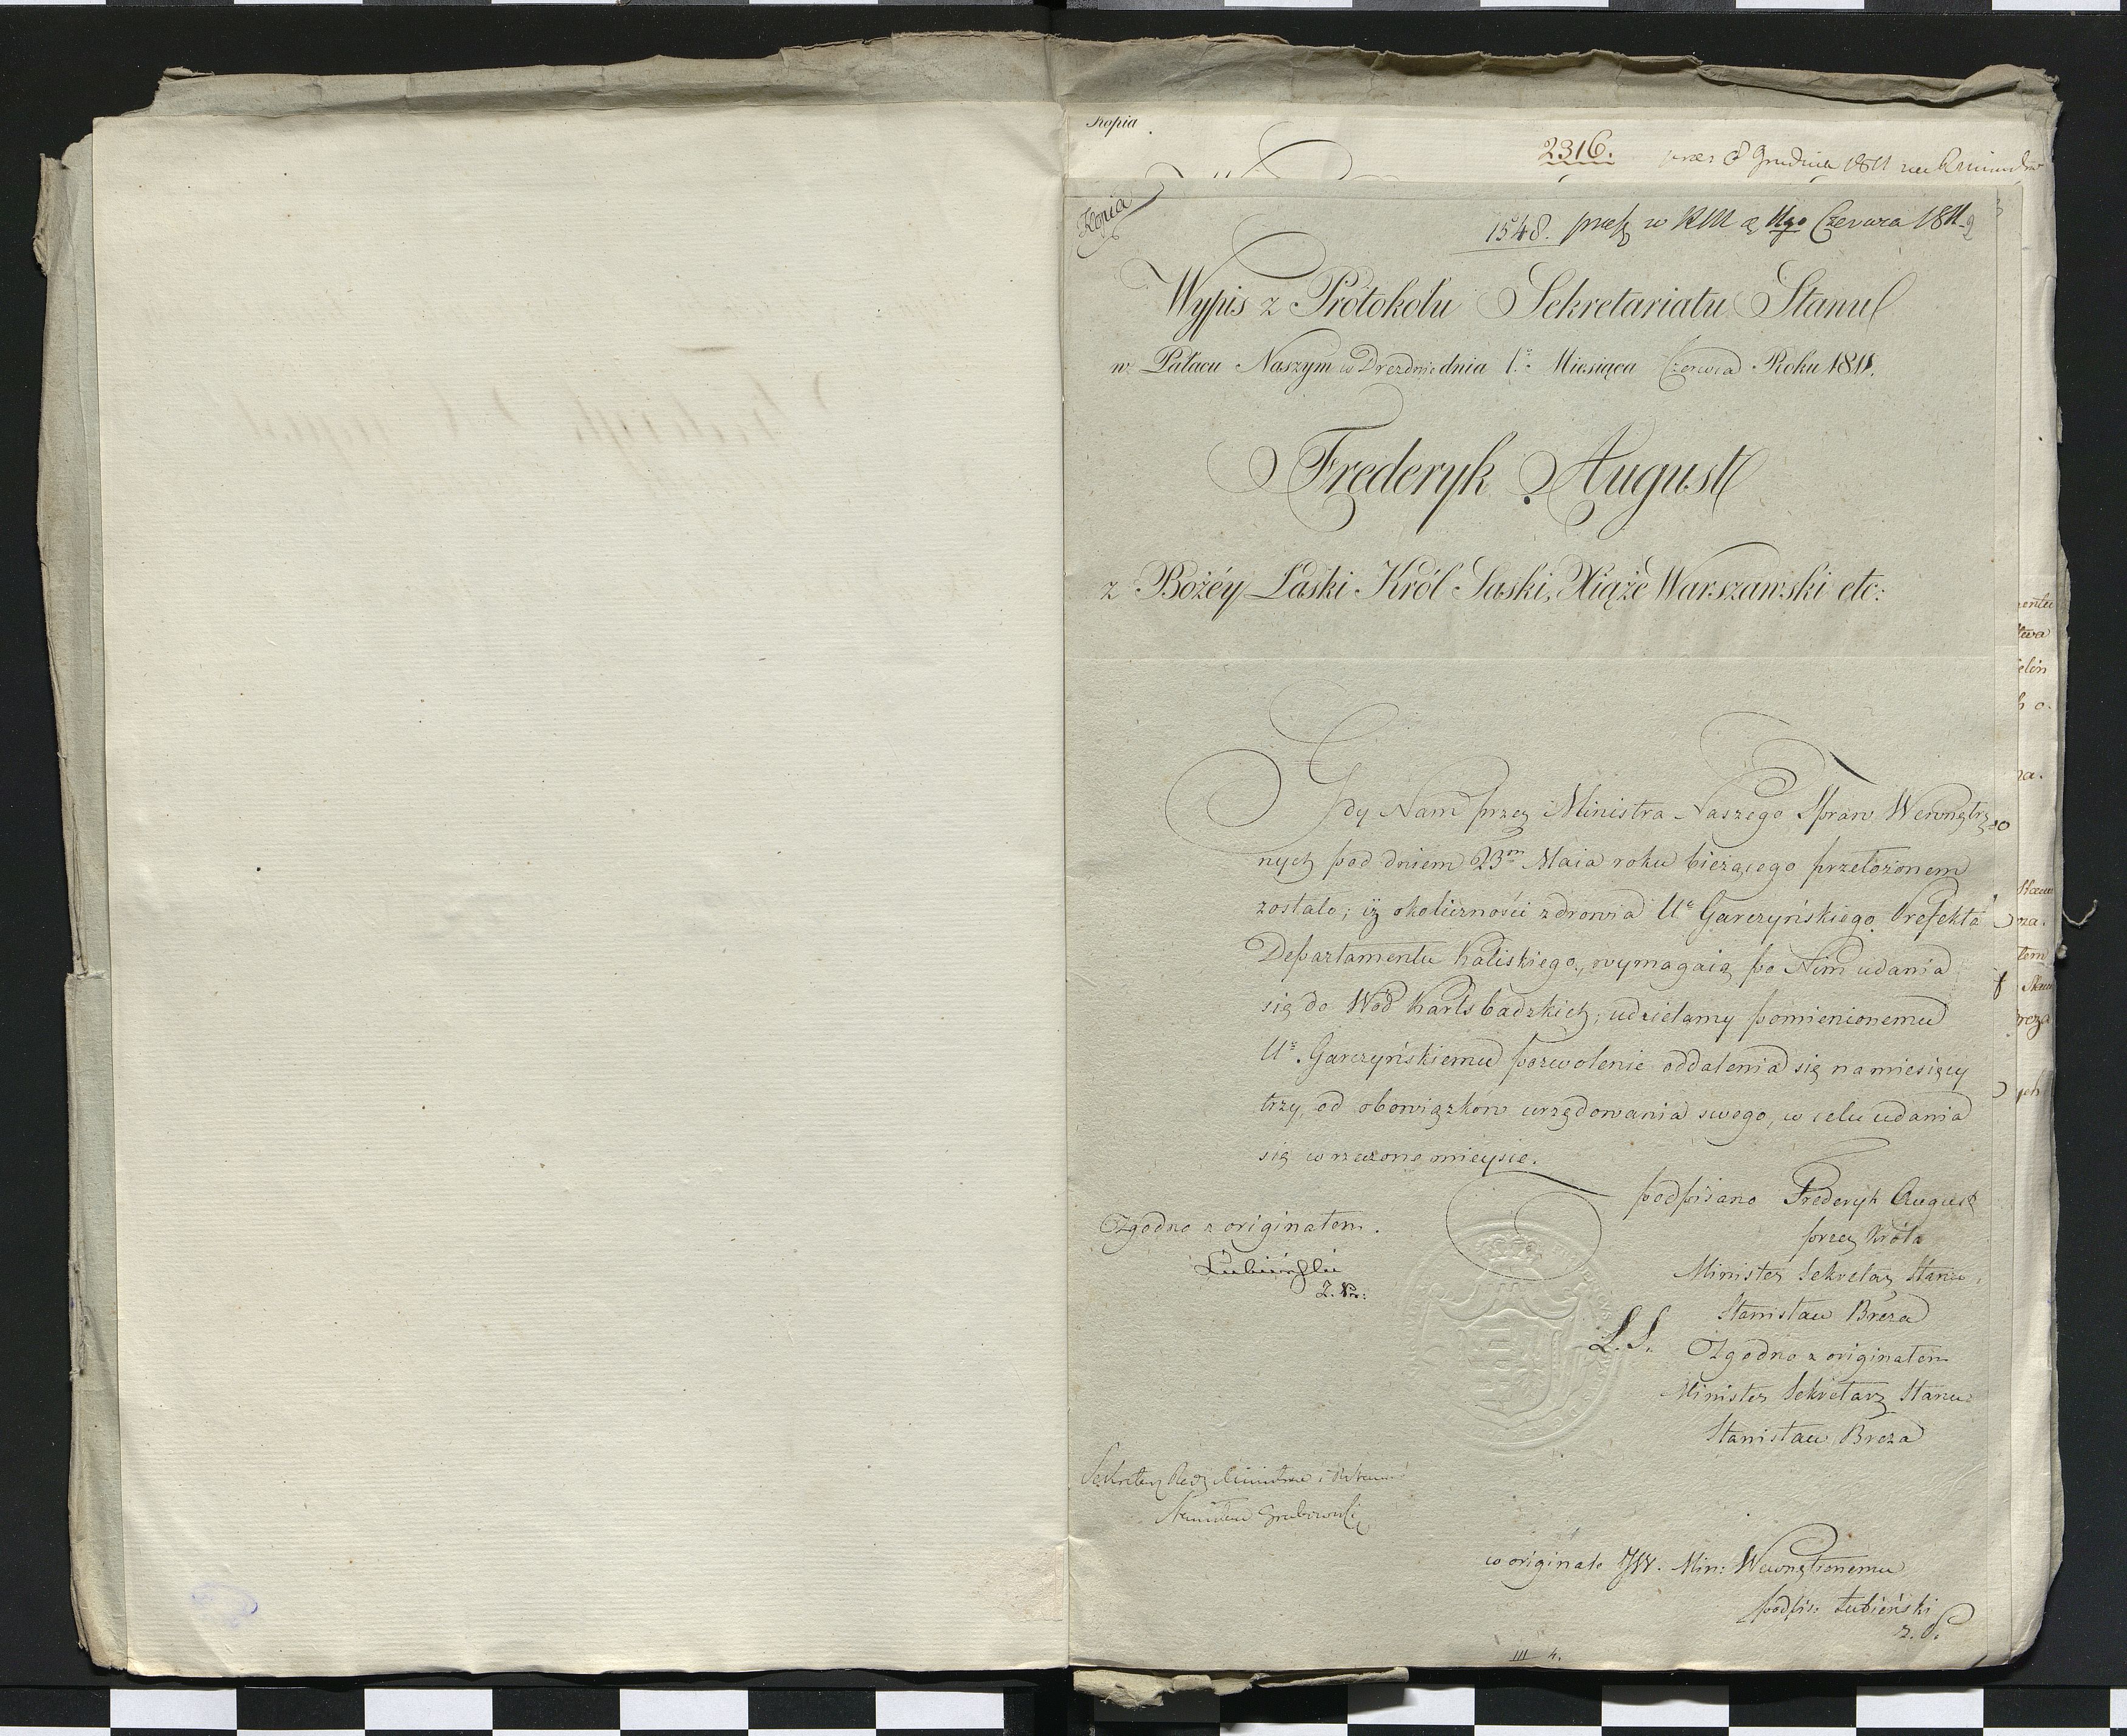 Kopia
2316.
Grudnia 1811
Kopia
1548. w RM 11go Czerwca 1811
Wypis z Protokołu Sekretariatu Stanu
w Pałacu Naszym w Dreznie dnia 1. Miesiąca Czerwca Roku 1811.
Frederyk August
z Bożéy Łaski Król Saski, Xiąże Warszawski etc:
Gdy Nam przez Ministra Naszego Spraw Wewnętrz
nych pod dniem 23m Maia roku bieżącego przełożonem
zostało; iż okoliczności zdrowia Ur. Garczyńskiego Prefekta
Departamentu Kaliskiego, wymagaią po Nim udania
się do Wód Karlsbadzkich; udzielamy pomienionemu
Ur. Garczyńskiemu pozwolenie oddalenia się na miesięcy
trzy, od obowiązków urzędowania swego, w celu udania
się w rzeczone mieysce.
podpisano Frederyk August
przez Króla
Minister Sekretarz Stanu
Stanisław Breza
L.S.
Zgodno z originałem
Minister Sekretarz Stanu
Stanisław Breza
Zgodno z originałem.
Łubieński
Stanisław Grabowski
w originale JW. Min: Wewnętrznemu
podpis: Łubieński
III 4.